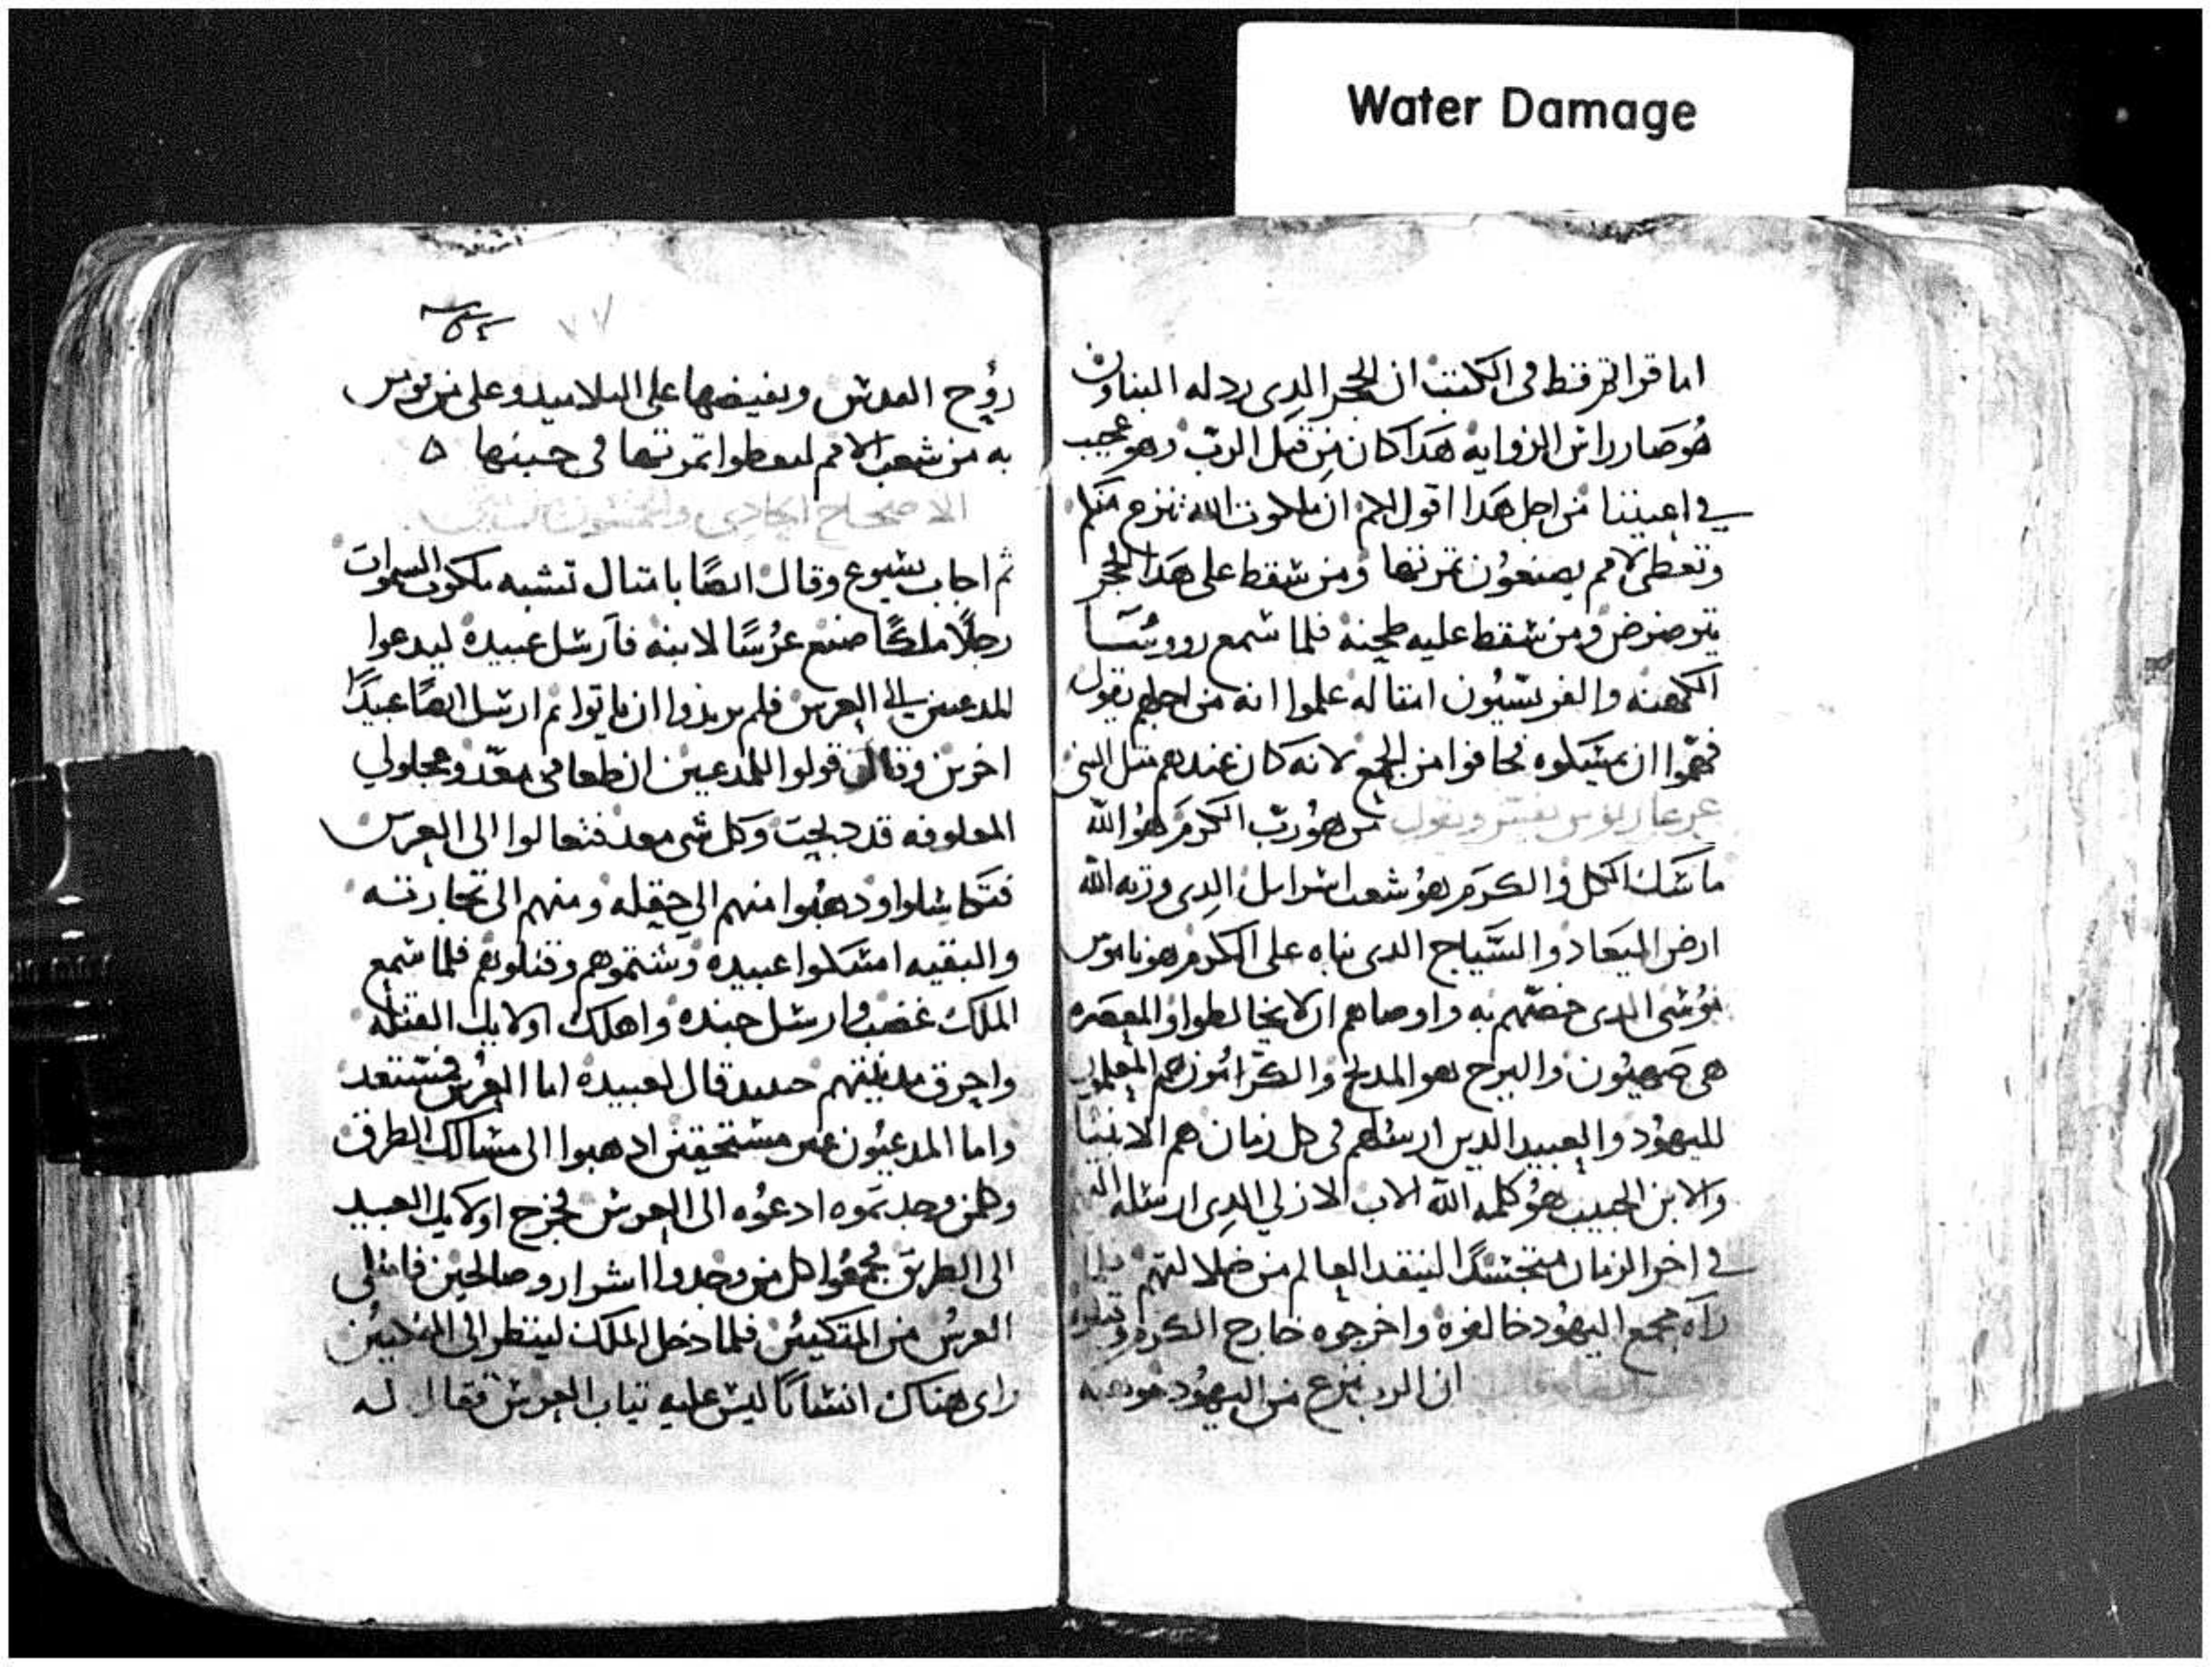 Water Damage
اما قراتم قط فى الكتب ان الحجر الدى ردله البناون
هو صار راس الزوايه هدا كان من قبل الرب وهو عجيب
في اعيننا من اجل هدا اقول لكم ان ملكوت الله تنزع منكم
وتعطى لامم يصنعون تمرتها ومن سقط على هدا الحجر
يترضرض ومن سقط عليه طحنه فلما سمع رووسا
الكهنه والفريسيون امتاله علموا انه من اجلهم يقول
فهموا ان يمسكوه فخافوا من الجمع لانه كان عندهم متل النبى
يفسر ويقول من هو رب الكرم هو الله
ماسك الكل والكرم هو شعب اسراىل الدى ورته الله
ارض الميعاد والسياج الدى بناه على الكرم هو ناموس
موسى الدى خصهم به واوصاهم ان لا يخالطوا والمعصره
هى صهيون والبرج هو المدبح والكرامون هم المعلمون
لليهود والعبيد الدين ارسلهم فى كل زمان هم الانبيا
والابن الحبيب هو كلمه الله الاب الازلي الدى ارسله الله
في اخر الزمان متجسدًا لينقد العالم من ضلالتهم فلما
راه مجمع اليهود خالفوه واخرجوه خارج الكرم وقتلوه
ان الرب نزع من اليهود موهبه
روح القدس ويفيضها على التلاميد وعلى من يومن
به من شعب الامم ليعطوا تمرتها فى حينها ه
الاصحاح الحادى والخمسون
تم اجاب يسوع وقال ايضًا بامتال تشبه ملكوت السموات
رجلًا ملكًا صنع عرسًا لابنه فارسل عبيده ليدعوا
المدعين الي العرس فلم يريدوا ان ياتوا تم ارسل ايضًا عبيدًا
اخرين وقال قولوا للمدعين ان طعامى معد وعجاولي
المعلوفه قد دبحت وكل شى معد فتعالوا الى العرس
فتكاسلوا ودهبوا منهم الى حقله ومنهم الى تجارته
والبقيه امسكوا عبيده وشتموهم وقتلوهم فلما سمع
الملك غضب وارسل جنده واهلك اولايك القتله
واحرق مدينتهم حينيد قال لعبيده اما العرس فمستعد
واما المدعيون غير مستحقين ادهبوا الى مسالك الطرق
وكلمن وجدتموه ادعوه الى العرس فخرج اولايك العبيد
الى الطريق فجمعوا كل من وجدوا اشرار وصالحين فامتلى
العرس من المتكيين فلما دخل الملك لينظر الى المتكيين
راى هناك انسانًا ليس عليه تياب العرس فقال له